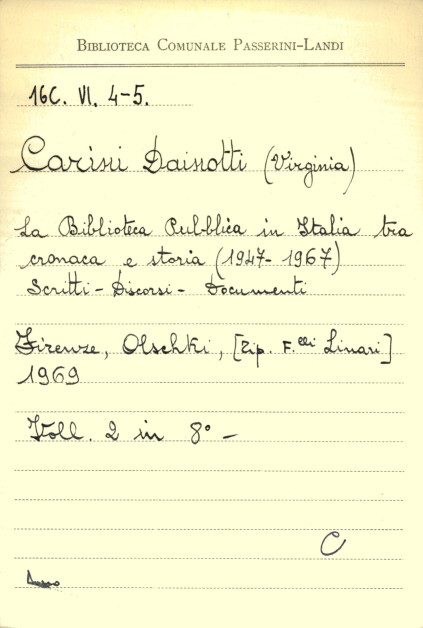 BIBLIOTECA COMUNALE PASSERINI-LANDI
16C. VI. 4-5.
Carini Dainotti (Virginia)
La Biblioteca Pubblica in Italia tra
cronaca e storia (1947-1967)
Scritti - Discorsi - Documenti
Firenze, Olschki, [Tip. F.elli Linari]
1969
Voll. 2 in 8° -
C